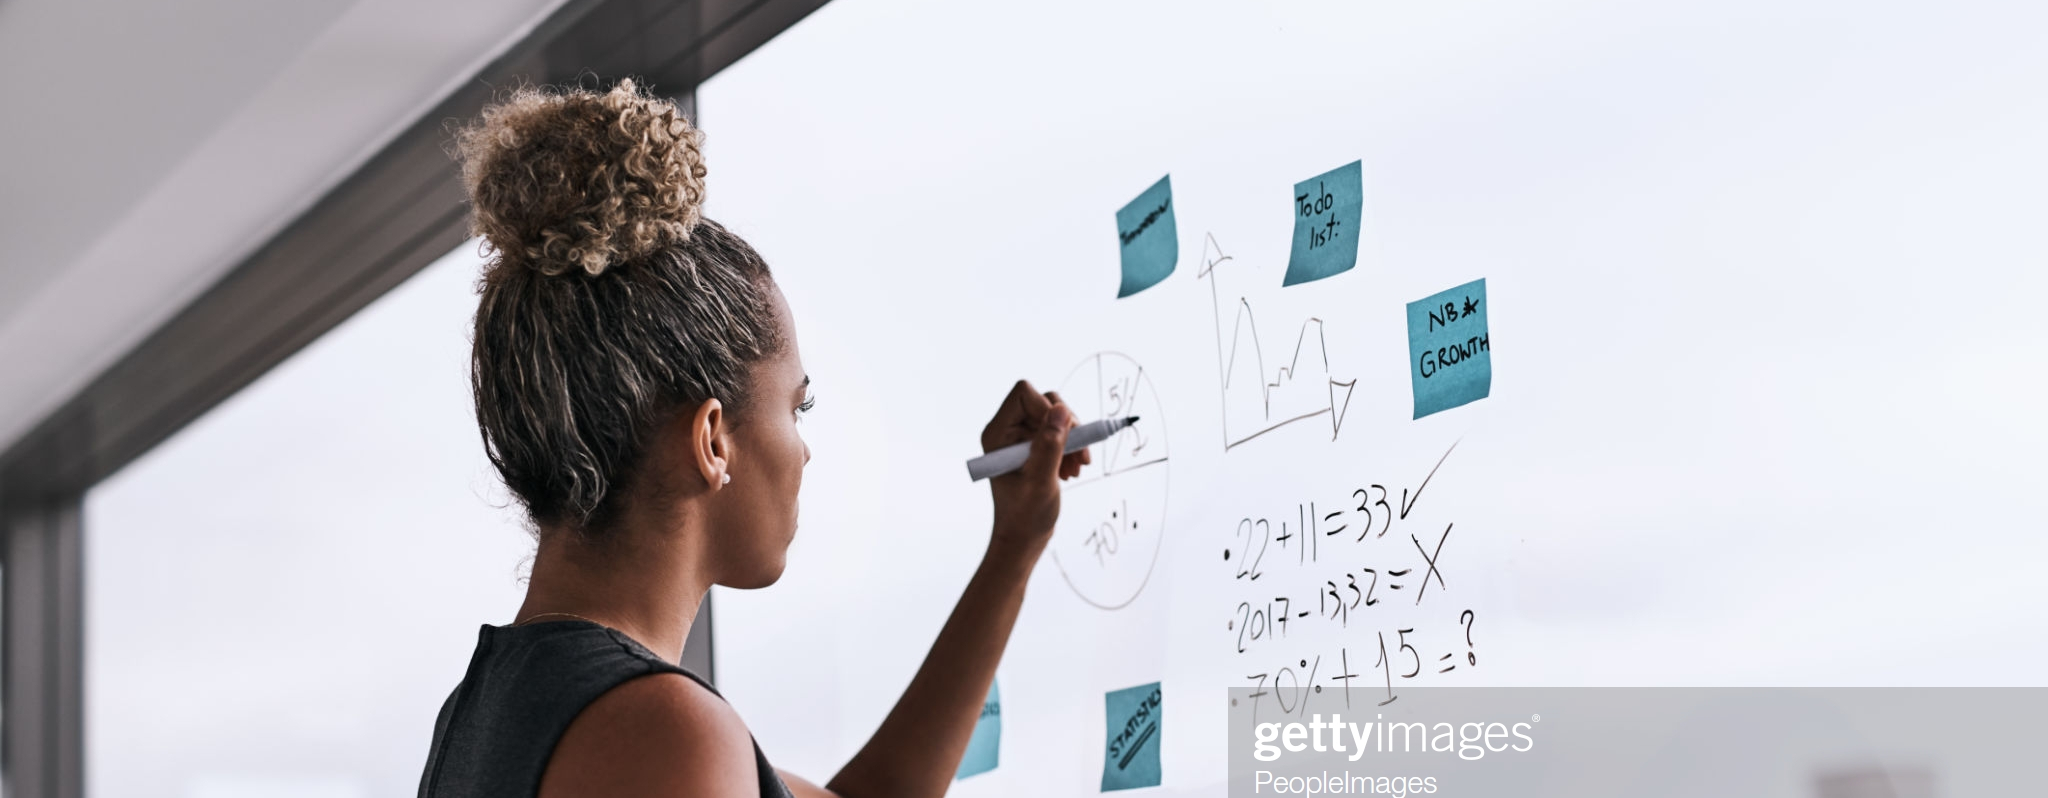 Tomorrow
To do
list:
NB*
GROWTH
5%
70%
• 22 + 11 = 33 ✓
• 2017 - 13,32 = X
• 70% + 15 = ?
STATISTICS
gettyimages®
PeopleImages